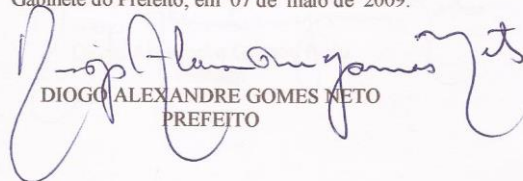 Gabinete do Prefeito, em 07 de maio de 2009.
Diogo Alexandre Gomes Neto
DIOGO ALEXANDRE GOMES NETO
PREFEITO